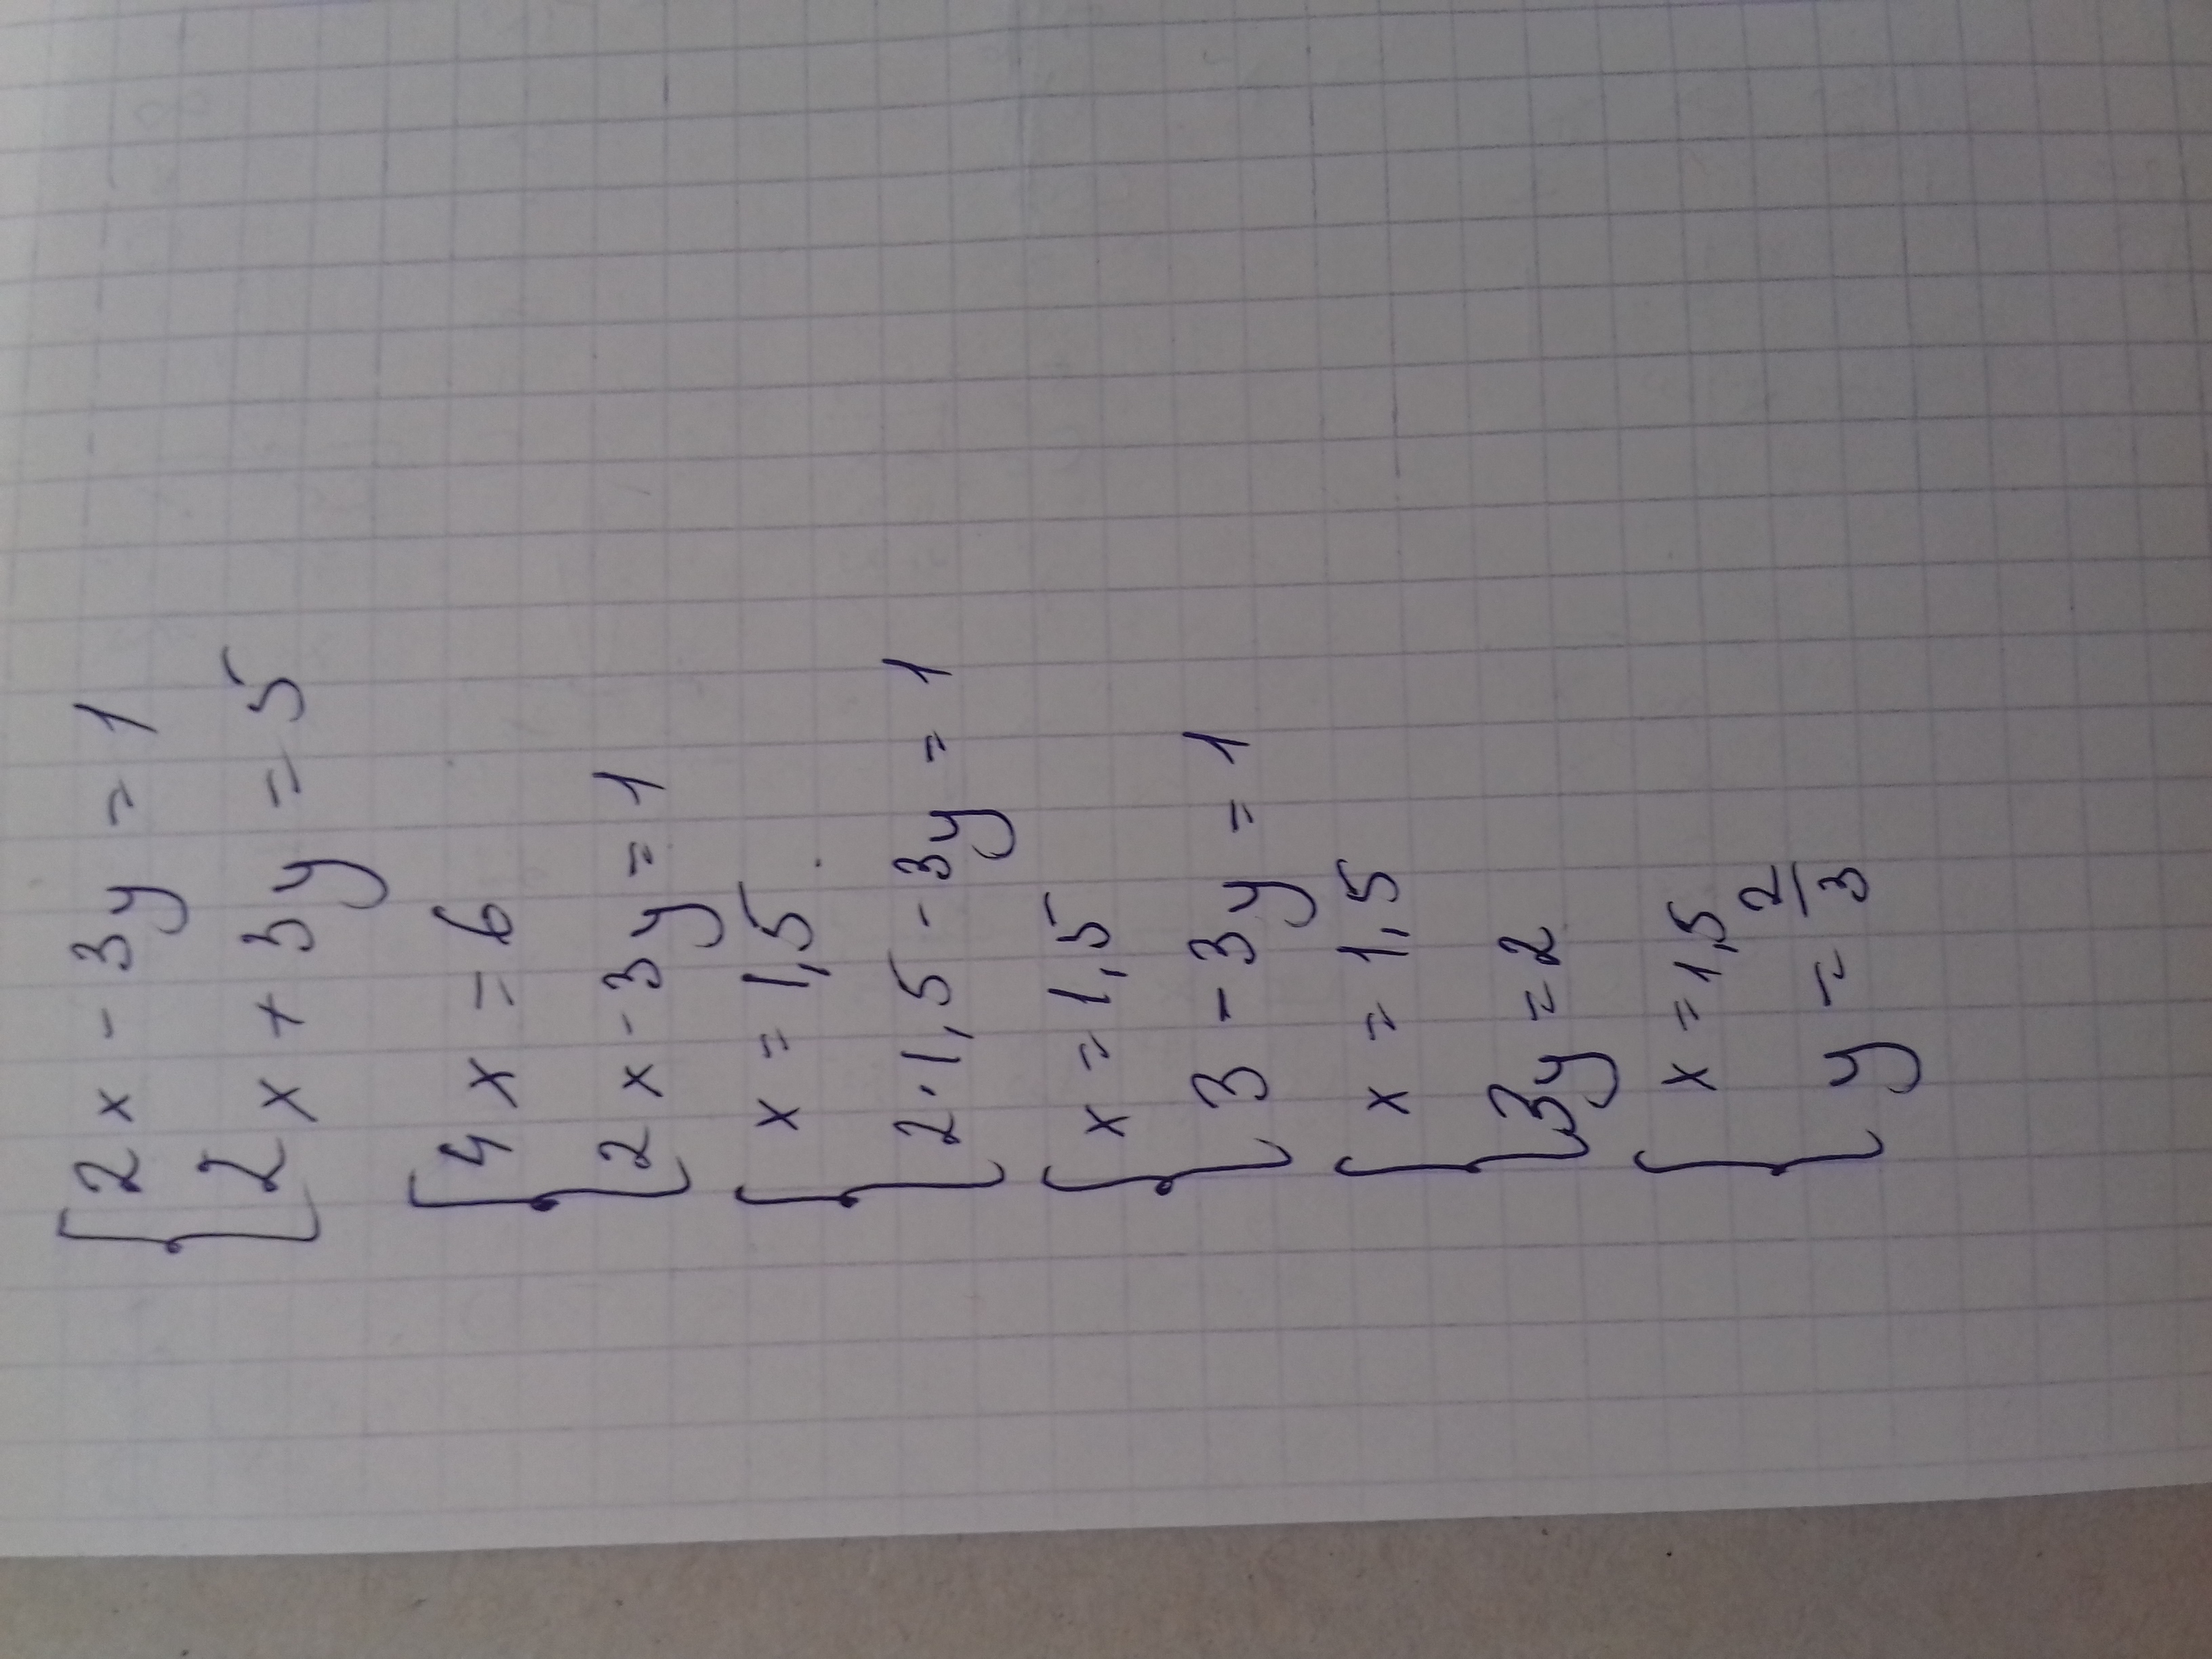 2x - 3y = 1
2x + 3y = 5
4x = 6
2x - 3y = 1
x = 1,5
2·1,5 - 3y = 1
x = 1,5
3 - 3y = 1
x = 1,5
3y = 2
x = 1,5
y = 2/3